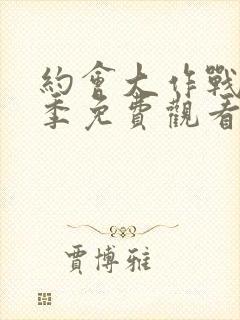 約會大作戰
季免費觀看
賈博雅